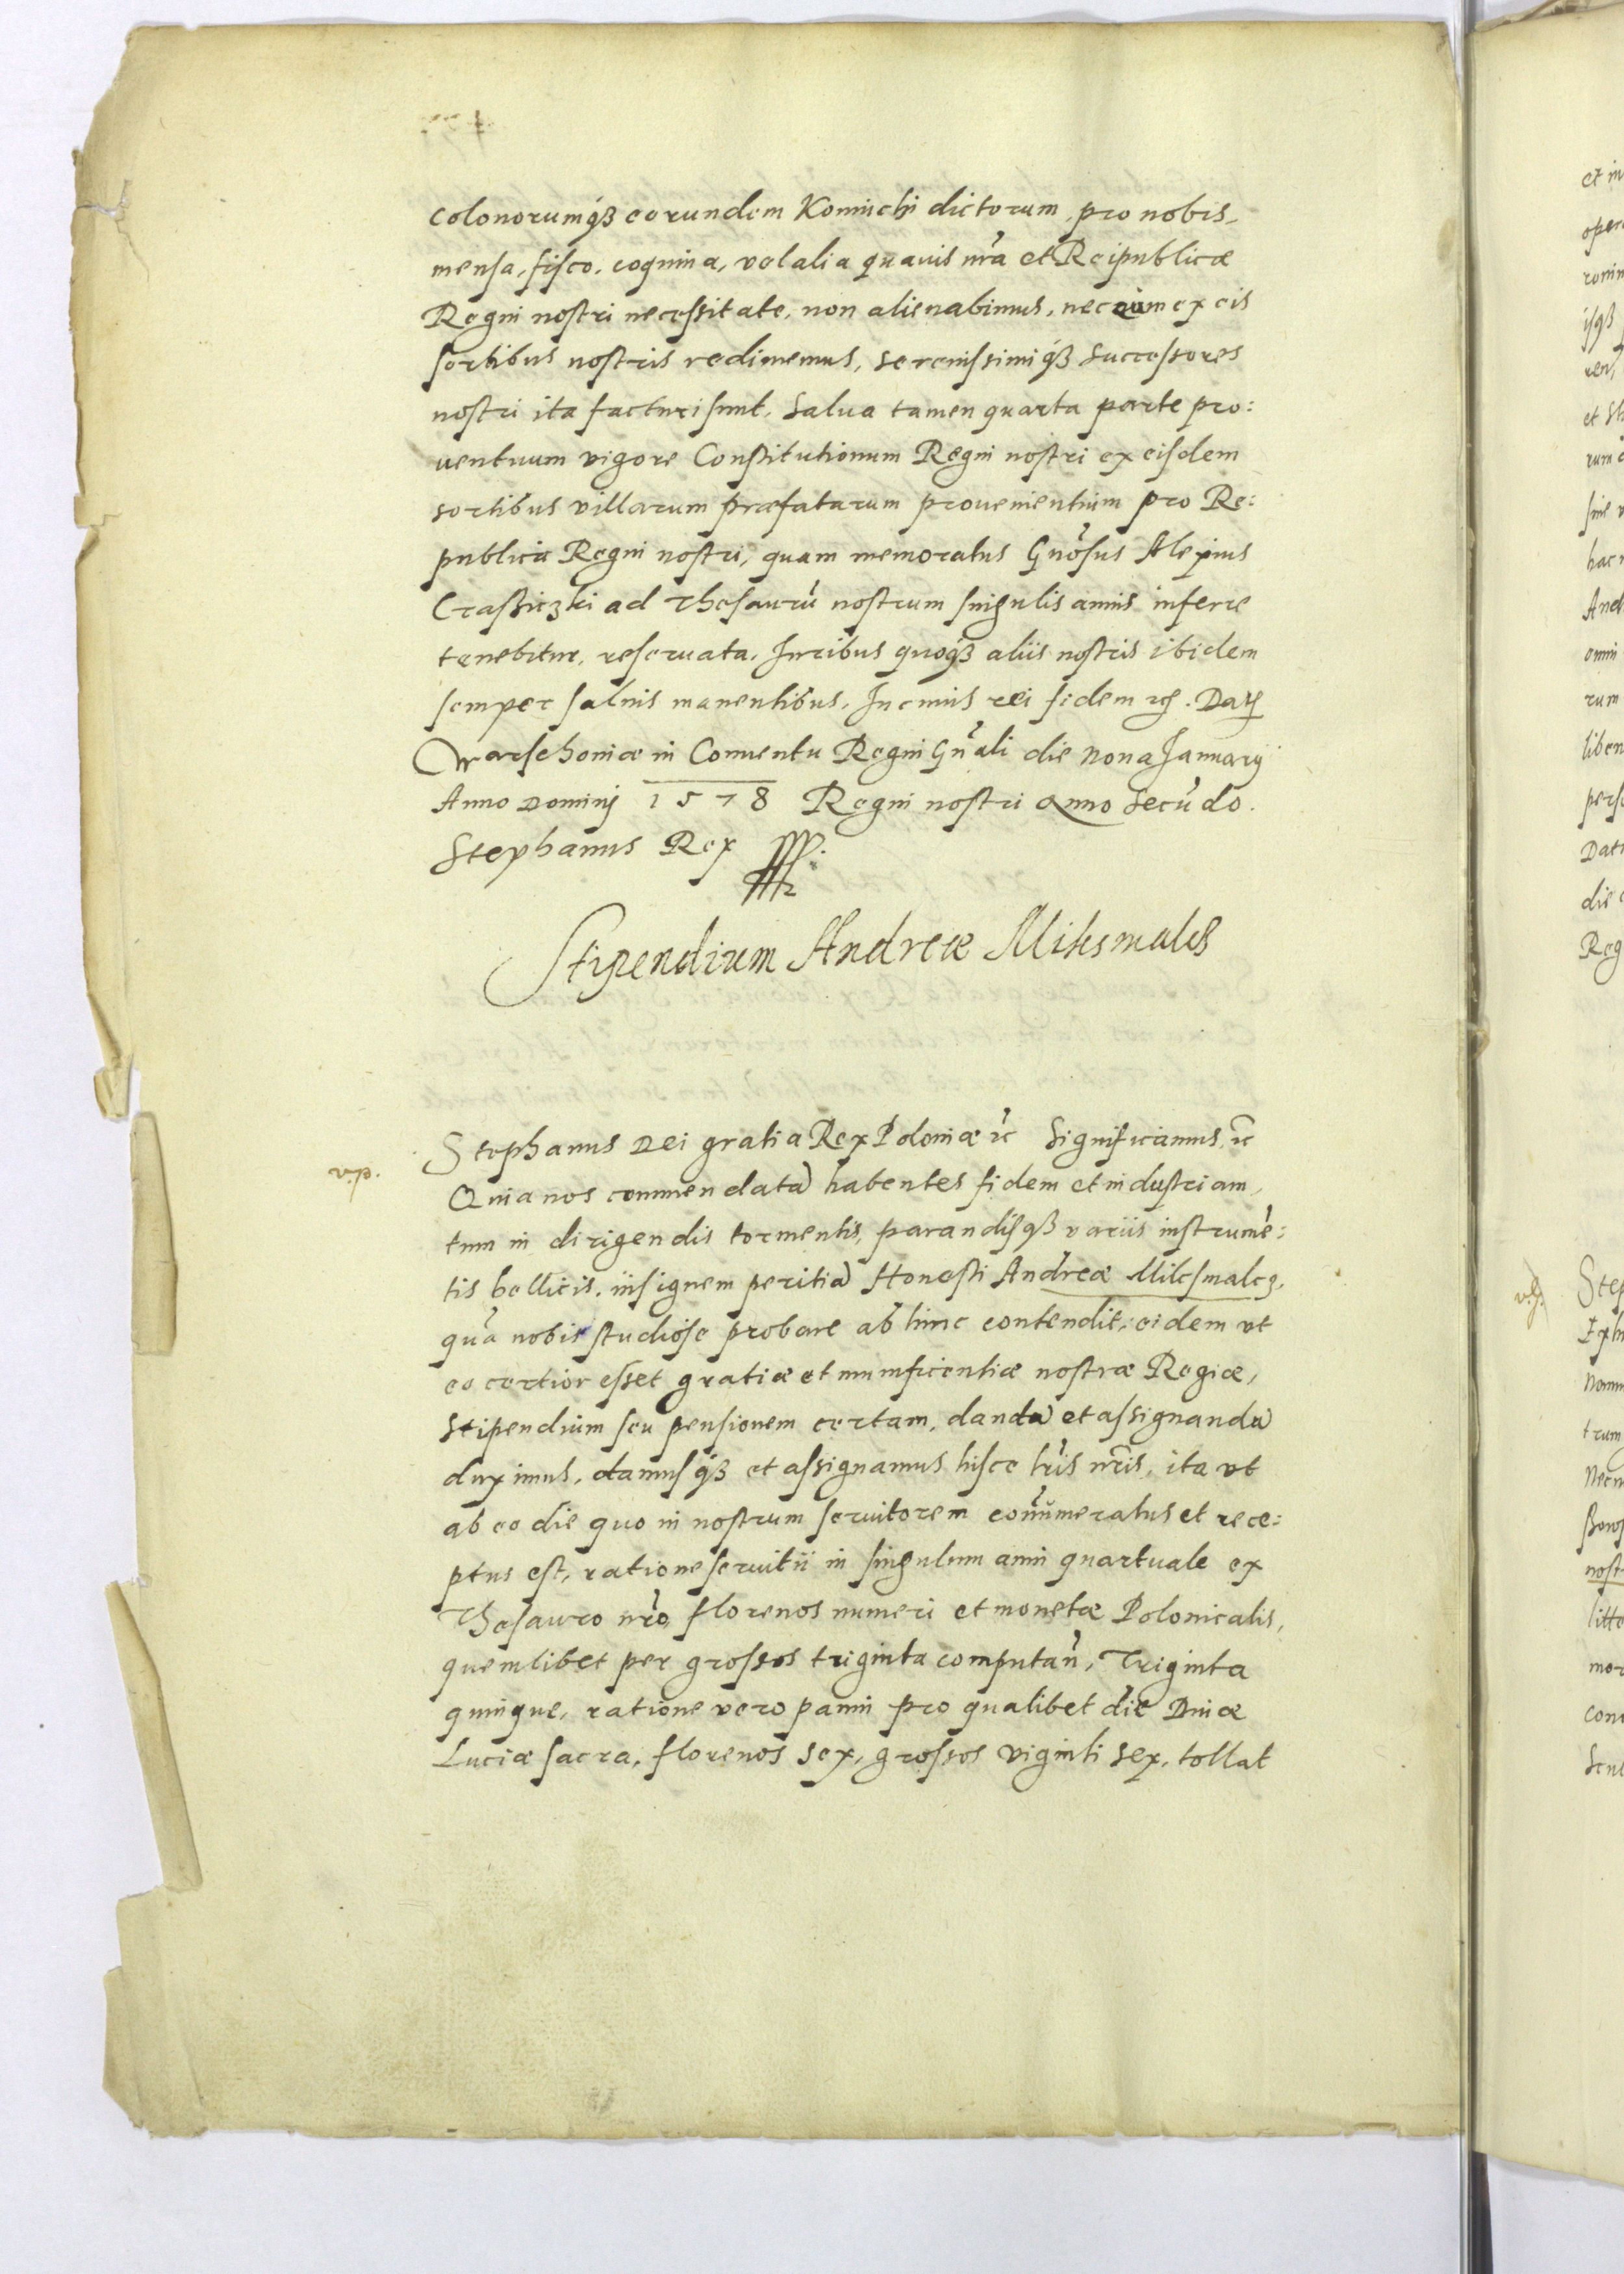 colonorumq́ꝫ eorundem Koniuchi dictorum, pro nobis,
mensa, fisco, coquina, vel alia quauis nr̃a et Reipublicæ
Regni nostri necessitate, non alienabimus, nec eum ex eis
sortibus nostris redimemus, serenissimiq́ꝫ Successores
nostri ita facturi sunt. Salua tamen quarta parte pro:
uentuum vigore Constitutionum Regni nostri ex eisdem
sortibus villarum præfatarum prouenientium pro Re:
publica Regni nostri, quam memoratus Gnõsus Alexius
Crasiczki ad Thesaurũ nostrum singulis annis inferre
tenebitur, reseruata. Juribus quoqꝫ aliis nostris ibidem
semper saluis manentibus. In cuius rei fidem
Warschouiæ in Conuentu Regni Gnãli die Nona Januarij
Anno Dominj 1578 Regni nostri Anno Secũdo.
Stephanus Rex
Stipendium Andreæ
v.p.
Stephanus Dei gratia Rex Poloniæ ẽc Significamus, ẽc
Quia nos commendatã habentes fidem et industriam,
tum in dirigendis tormentis, parandisqꝫ variis instrumẽ:
tis bellicis, insignem peritiã Honesti Andreæ
quã nobis studiose probare ab hinc contendit, eidem vt
eo certior esset gratiæ et munificentiæ nostræ Regiæ,
Stipendium seu pensionem certam, dandã et assignandã
duximus, damusq́ꝫ et assignamus hisce lr̃is nr̃is, ita vt
ab eo die quo in nostrum seruitorem connũmeratus et rece:
ptus est, ratione seruitii in singulum anni quartuale ex
Thesauro nr̃o, florenos numeri et monetæ Polonicalis,
quemlibet per grossos triginta computañ, Triginta
quinque, ratione vero panni pro qualibet die Diuæ
Luciæ sacra, florenos sex, grossos viginti sex, tollat